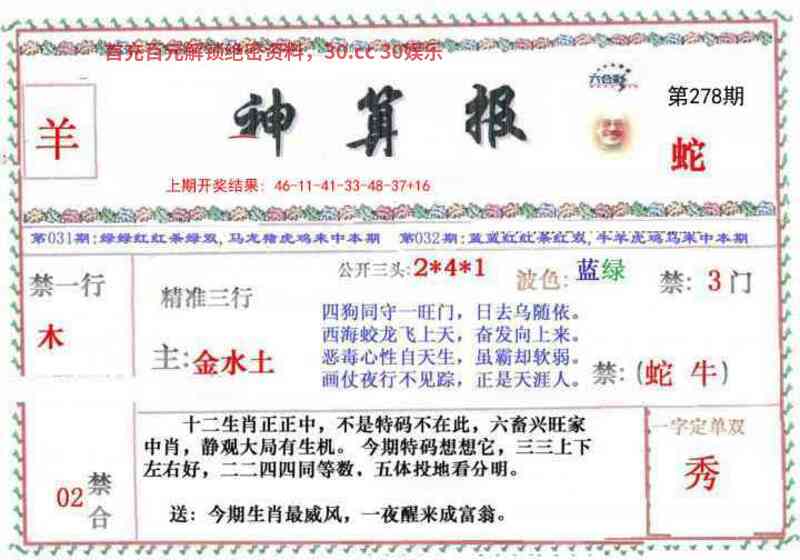 首充百元解锁绝密资料，30.cc 30娱乐
六合彩
第278期
羊
神算报
蛇
上期开奖结果：46-11-41-33-48-37+16
第031期:绿绿红红条绿双,马龙猪虎鸡来中本期 第032期:蓝蓝红红条红双,牛羊虎鸡马来中本期
禁一行
木
精准三行
主:金水土
公开三头:2*4*1
波色:蓝绿
禁: 3门
四狗同守一旺门，日去乌随依。
西海蛟龙飞上天，奋发向上来。
恶毒心性自天生，虽霸却软弱。
画仗夜行不见踪，正是天涯人。
禁:(蛇 牛)
02
禁合
十二生肖正正中，不是特码不在此，六畜兴旺家
中肖，静观大局有生机。 今期特码想想它，三三上下
左右好，二二四四同等数，五体投地看分明。
送：今期生肖最威风，一夜醒来成富翁。
一字定单双
秀